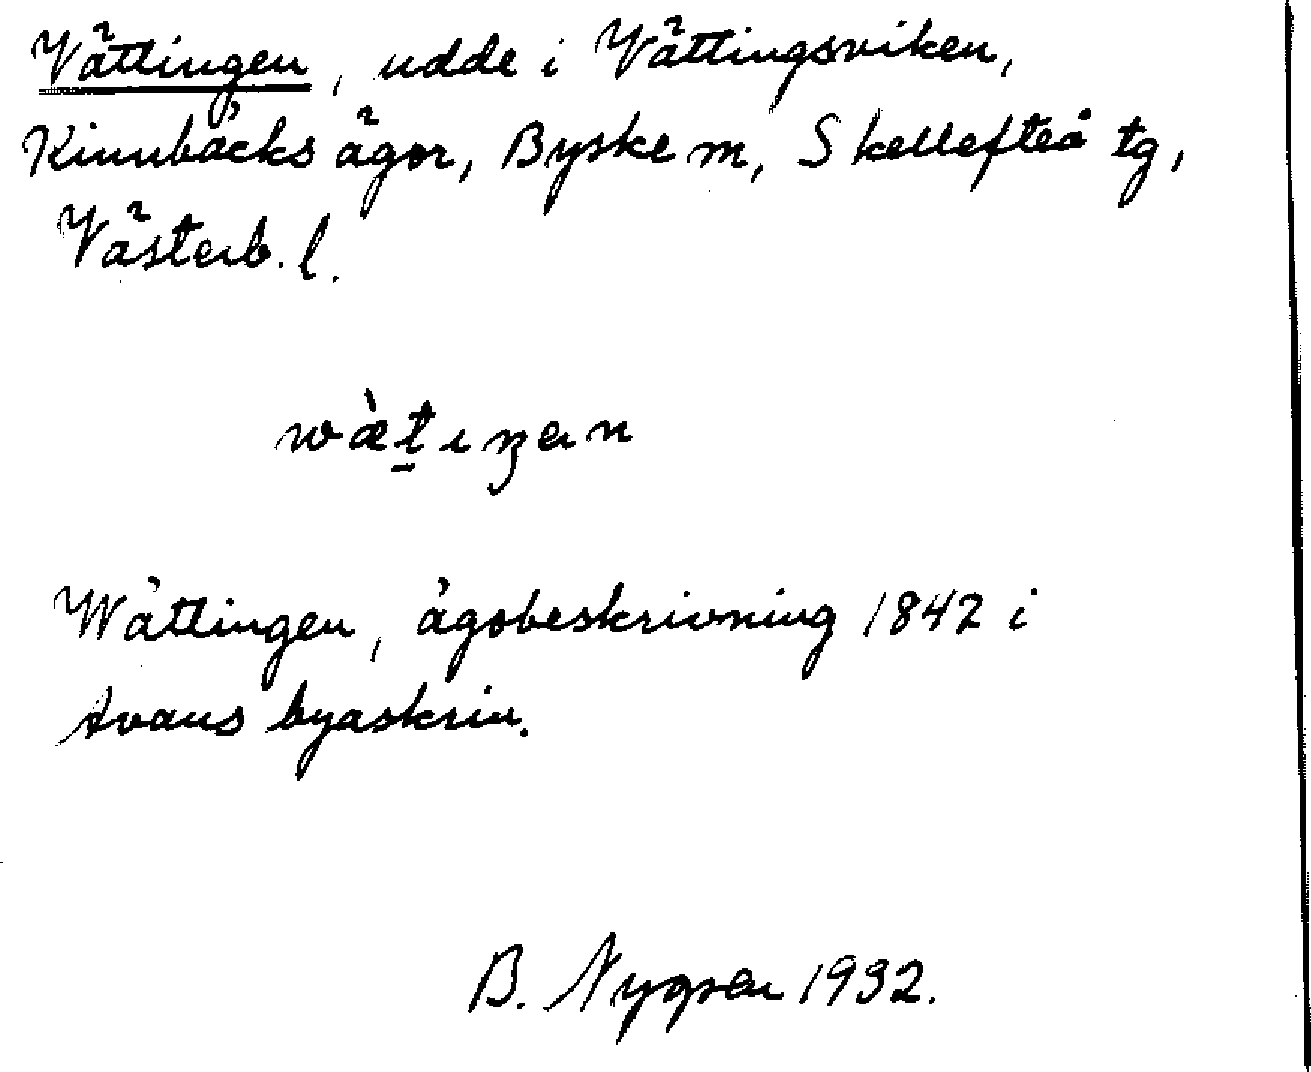 Vättingen, udde i Vättingsviken,
Kinnbäcks ägor, Byske m, Skellefteå tg,
Västerb. l.
Wättingen, ägobeskrivning 1842 i
Avans byaskrin.
B. Nygren 1932.